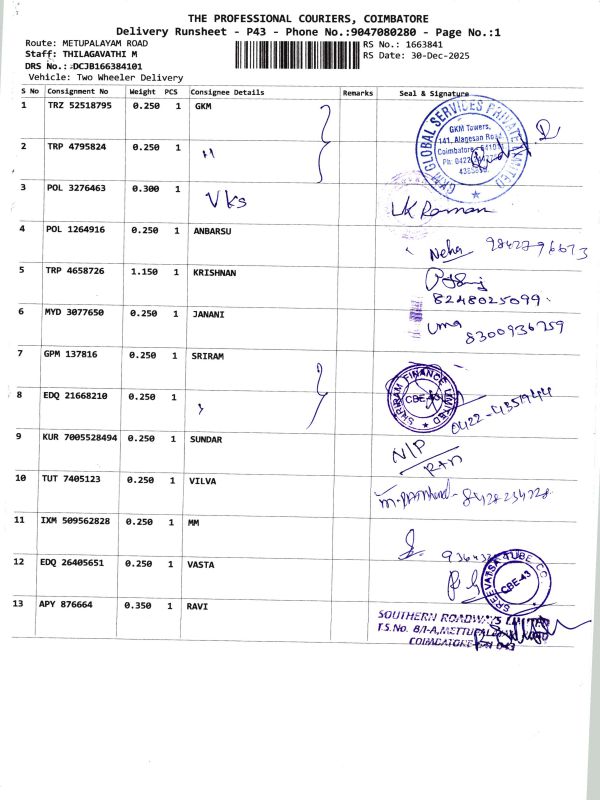 THE PROFESSIONAL COURIERS, COIMBATORE
Delivery Runsheet - P43 - Phone No.:9047080280 - Page No.:1
Route: METUPALAYAM ROAD
RS No.: 1663841
Staff: THILAGAVATHI M
RS Date: 30-Dec-2025
DRS No.: DCJB166384101
Vehicle: Two Wheeler Delivery
S No Consignment No Weight PCS Consignee Details Remarks Seal & Signature
1 TRZ 52518795 0.250 1 GKM
GKM GLOBAL SERVICES PRIVATE LIMITED
GKM Towers,
141, Alagesan Road
Coimbatore
2 TRP 4795824 0.250 1 "
3 POL 3276463 0.300 1 Vks
LK Raman
4 POL 1264916 0.250 1 ANBARSU
Neha 9842796673
5 TRP 4658726 1.150 1 KRISHNAN
8248025099
6 MYD 3077650 0.250 1 JANANI
Uma 8300936759
7 GPM 137816 0.250 1 SRIRAM
SHRIRAM FINANCE LIMITED
CBE-43
8 EDQ 21668210 0.250 1
0422-4351944
9 KUR 7005528494 0.250 1 SUNDAR
N/P
10 TUT 7405123 0.250 1 VILVA
8428234228
11 IXM 509562828 0.250 1 MM
12 EDQ 26405651 0.250 1 VASTA
SREEVATSA TUBE CO.
CBE-43
13 APY 876664 0.350 1 RAVI
SOUTHERN ROADWAYS LIMITED
T.S.No. 8/1-A, METTUPALAYAM ROAD
COIMBATORE-641 043